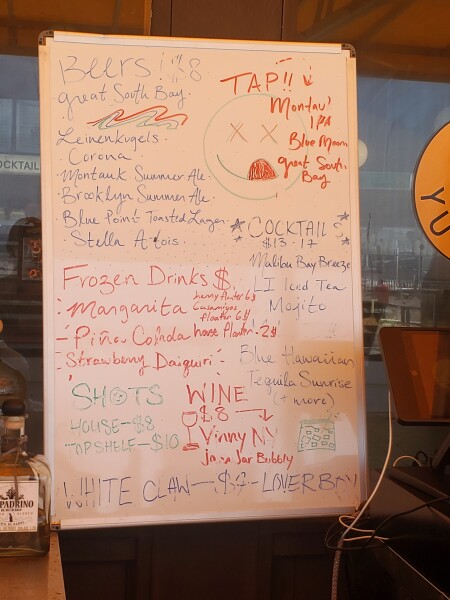 Beers! $8
Great South Bay.
Leinenkugels.
Corona.
Montauk Summer Ale.
Brooklyn Summer Ale.
Blue Point Toasted Lager.
Stella Atois.
TAP!!
Montau
IPA
Blue Moon
great South
Bay
COCKTAIL
$13-17
Malibu Bay Breeze
LI Iced Tea
Mojito
Blue Hawaiian
Tequila Sunrise
(+ more)
Frozen Drinks $
Margarita
floater 6$
Piña Colada
house floater! 2$
Strawberry Daiquiri
SHOTS
HOUSE-$8
TOPSHELF-$10
WINE
$8
Vinny NY
Bubbly
WHITE CLAW-$7-LOVERBOY
COCKTAIL
YU
PADRINO